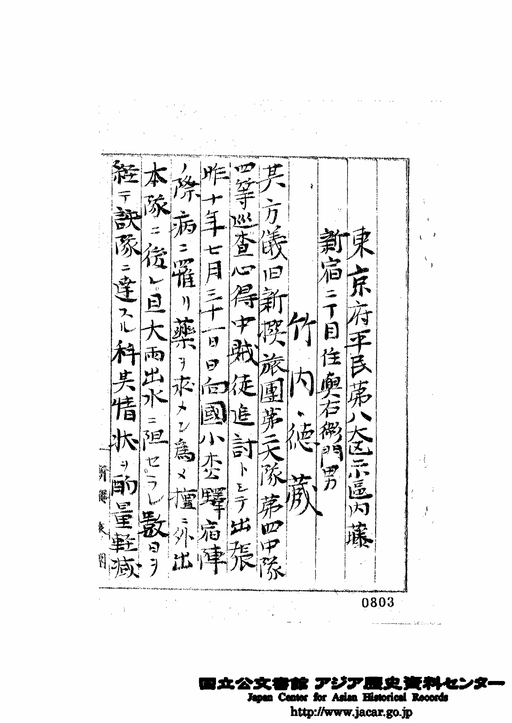 東京府平民第八大区示區内藤
新宿二丁目住與右衛門男
竹内徳蔵
其方儀旧新撰旅團第二大隊第四中隊
四等巡査心得中賊徒追討トシテ出張
昨十年七月三十一日日向國小 驛宿陣
ノ際病ニ罹リ藥ヲ求メン為メ擅ニ外出
本隊ニ後レ且大雨出水ニ阻セラレ數日ヲ
経テ 隊ニ達スル科其情状ヲ酌量軽減
0803
国立公文書館 アジア歴史資料センター
Japan Center for Asian Historical Records
http://www.jacar.go.jp